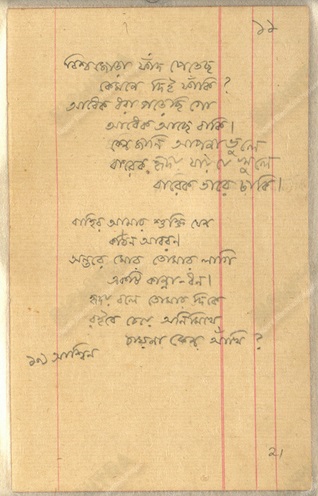 ১৯
বিশ্বজোড়া ফাঁদ পেতেছ
কেমনে দিই ফাঁকি?
আধেক ধরা পড়েছি গো
আধেক আছে বাকি।
কেন জানি আপনা ভুলে
বারেক হৃদয় যায় যে খুলে
বারেক তারে ঢাকি।
বাহির আমার শুক্তি যেন
কঠিন আবরণ।
অন্তরে মোর তোমার লাগি
একটি কান্না-ধন।
হৃদয় বলে তোমার দিকে
রইবে চেয়ে অনিমিখে,
চায়না কেন আঁখি?
আশ্বিন